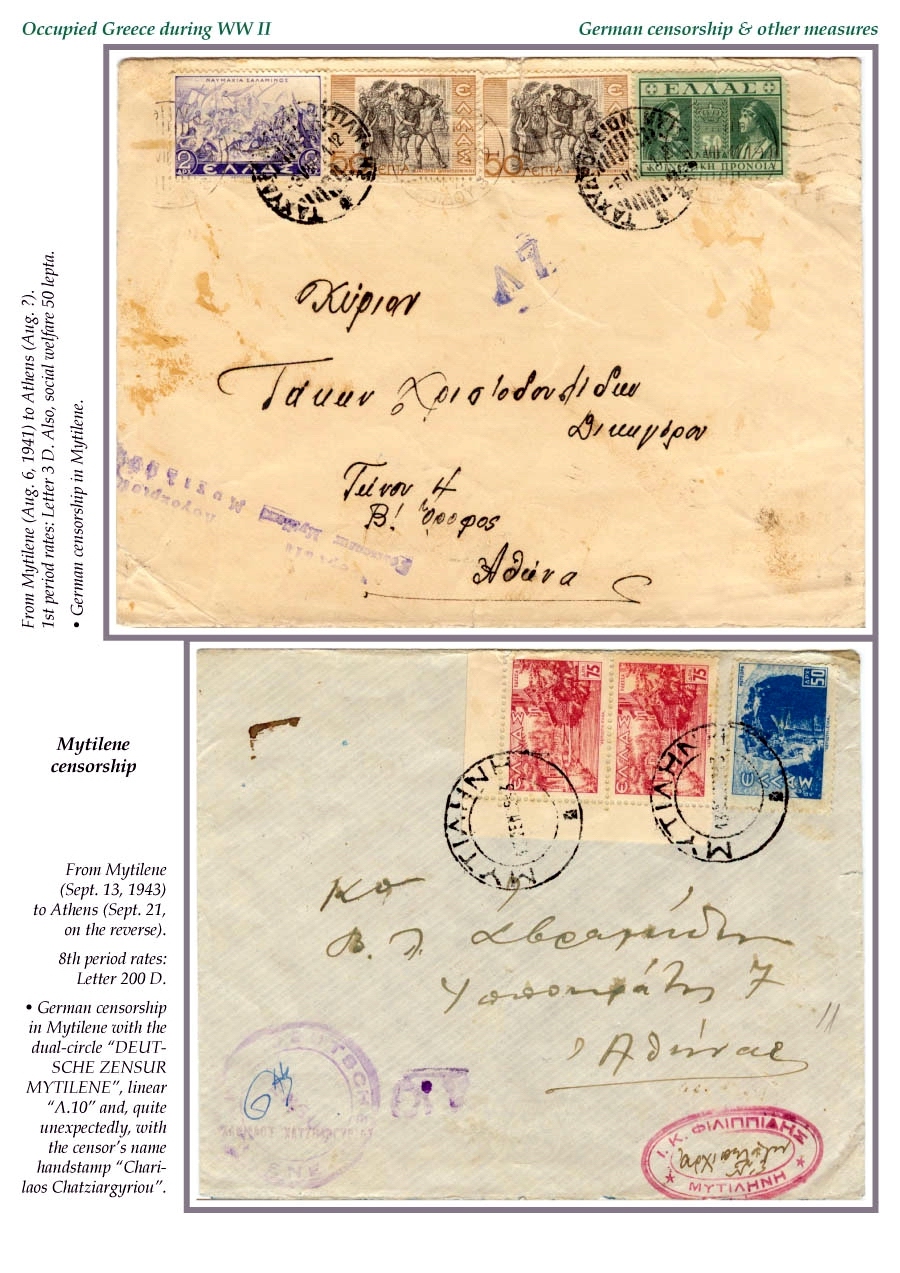 Occupied Greece during WW II
German censorship & other measures
From Mytilene (Aug. 6, 1941) to Athens (Aug. ?).
1st period rates: Letter 3 D. Also, social welfare 50 lepta.
• German censorship in Mytilene.
ΝΑΥΜΑΧΙΑ ΣΑΛΑΜΙΝΟΣ
2
ΕΛΛΑΣ
50 ΛΕΠΤΑ
ΕΛΛΑΣ
50 ΛΕΠΤΑ
ΕΛΛΑΣ
50
ΠΡΟΝΟΙΑ
Κύριον
Τάκην Χριστοδουλίδην
Δικηγόρον
Τήνου 4
Β! Όροφος
Αθήνα
Mytilene
censorship
From Mytilene
(Sept. 13, 1943)
to Athens (Sept. 21,
on the reverse).
8th period rates:
Letter 200 D.
• German censorship
in Mytilene with the
dual-circle “DEUT-
SCHE ZENSUR
MYTILENE”, linear
“Λ.10” and, quite
unexpectedly, with
the censor’s name
handstamp “Chari-
laos Chatziargyriou”.
75
ΕΛΛΑΣ
75
ΕΛΛΑΣ
50
ΕΛΛΑΣ
ΜΥΤΙΛΗΝΗ
ΜΥΤΙΛΗΝΗ
Κον
7
Αθήνας
Ι. Κ. ΦΙΛΙΠΠΙΔΗΣ
ΜΥΤΙΛΗΝΗ